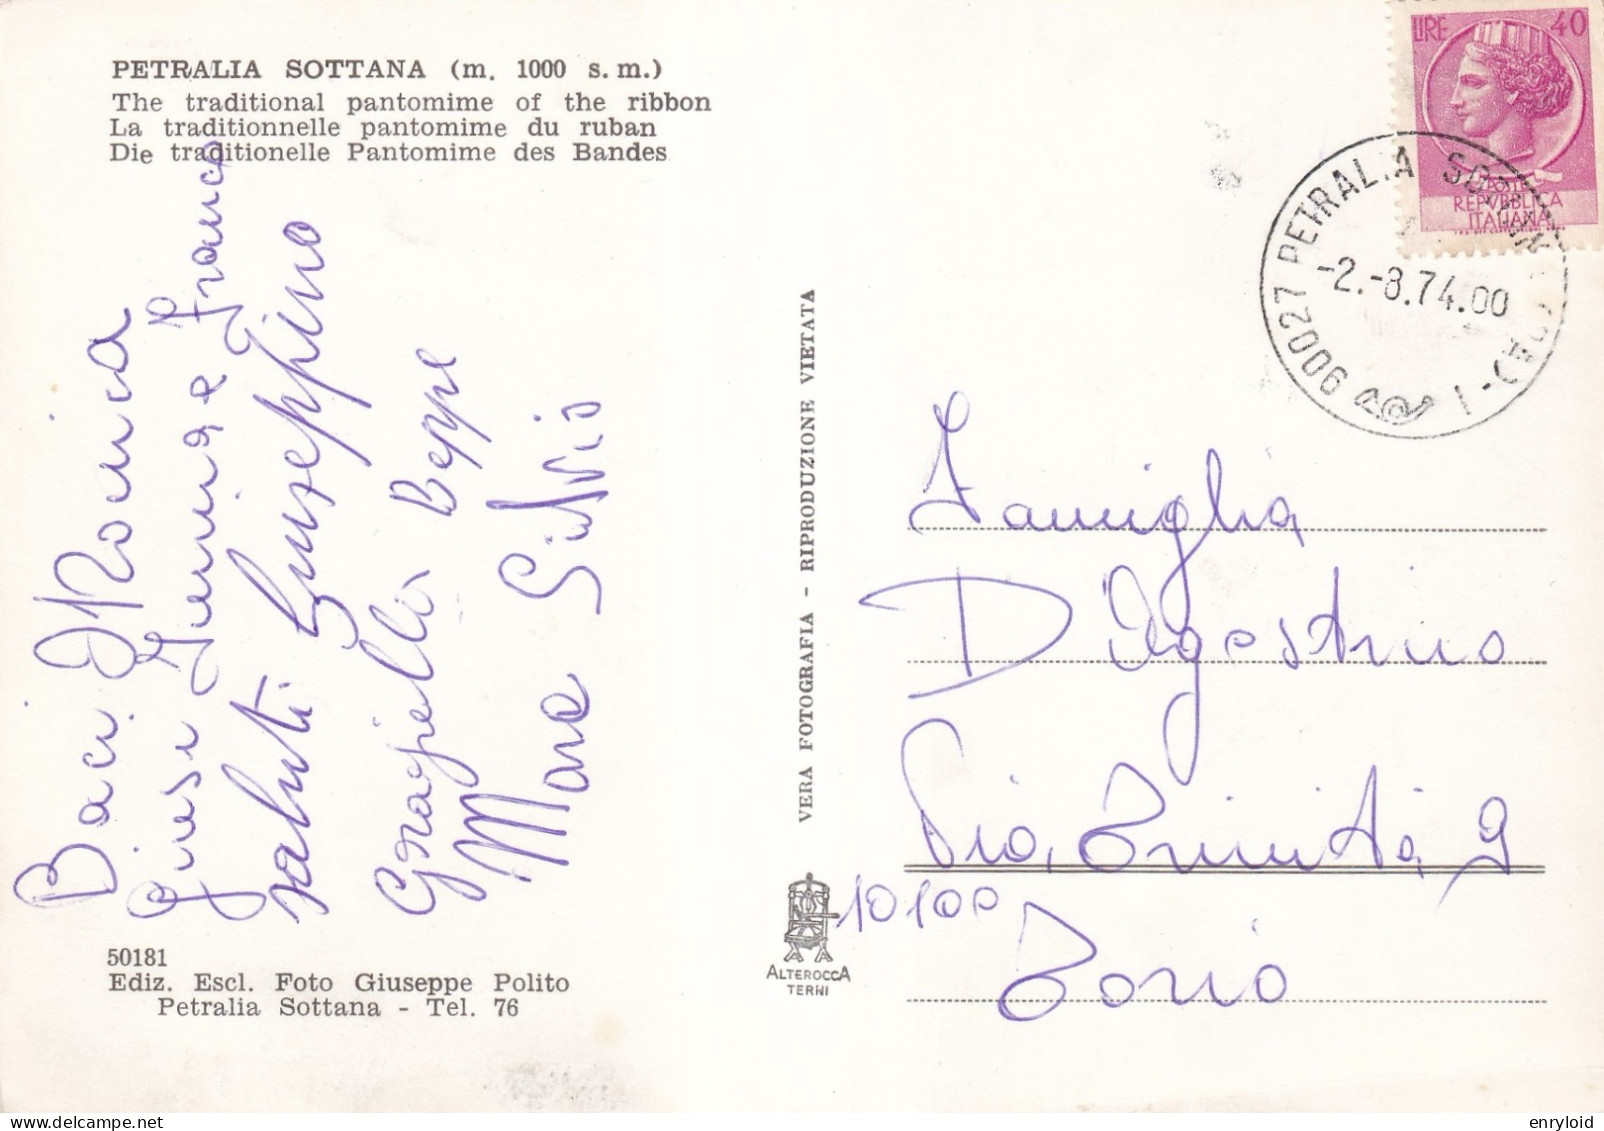 PETRALIA SOTTANA (m. 1000 s. m.)
The traditional pantomime of the ribbon
La traditionnelle pantomime du ruban
Die traditionelle Pantomime des Bandes
Baci Monica
Gemma e Franco
saluti Giuseppino
Graziella Beppe
Mara Silvio
50181
Ediz. Escl. Foto Giuseppe Polito
Petralia Sottana - Tel. 76
VERA FOTOGRAFIA - RIPRODUZIONE VIETATA
ALTEROCCA
TERNI
LIRE 40
POSTE
REPVBBLICA
ITALIANA
90027 PETRALIA
-2.-8.74.00
Famiglia
D'Agostino
Via Trinità, 9
10100
Torio
enryloid